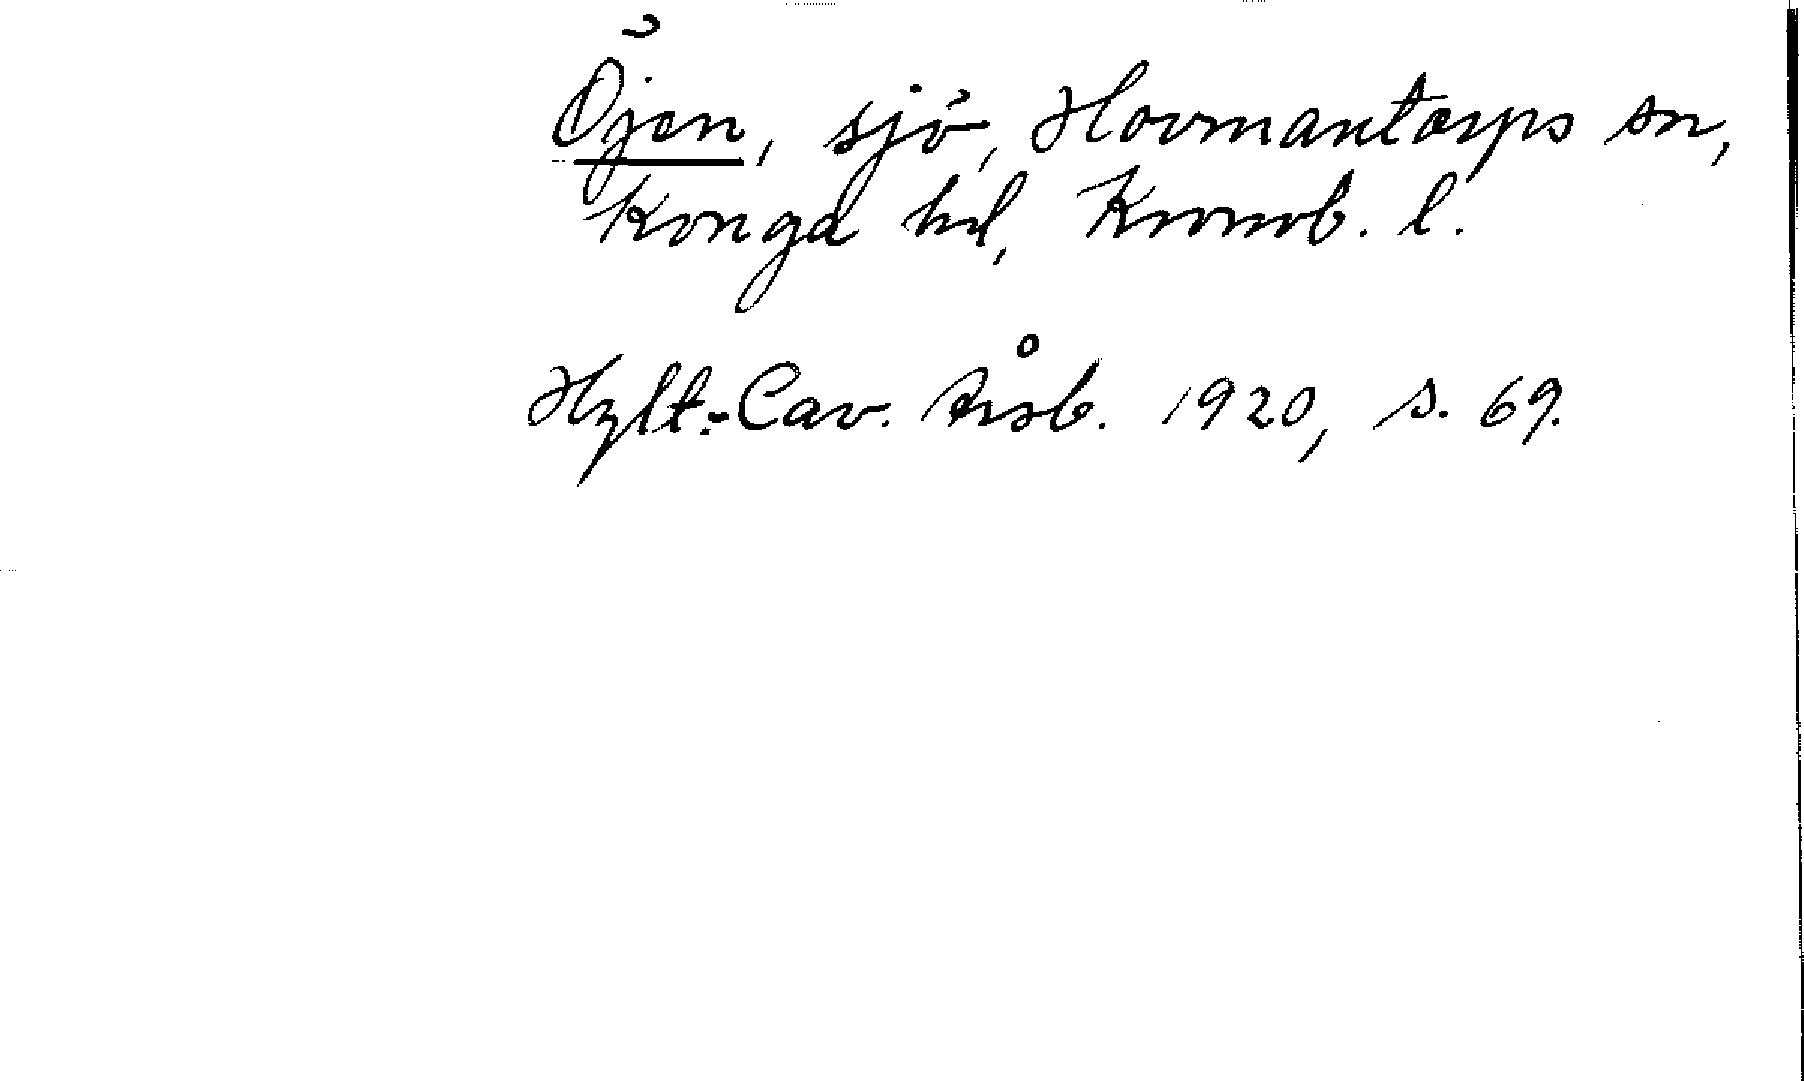 Öjen, sjö, Hovmantorps sn,
Konga hd, Kronob. l.
Hylt.-Cav. Årsb. 1920, s. 69.